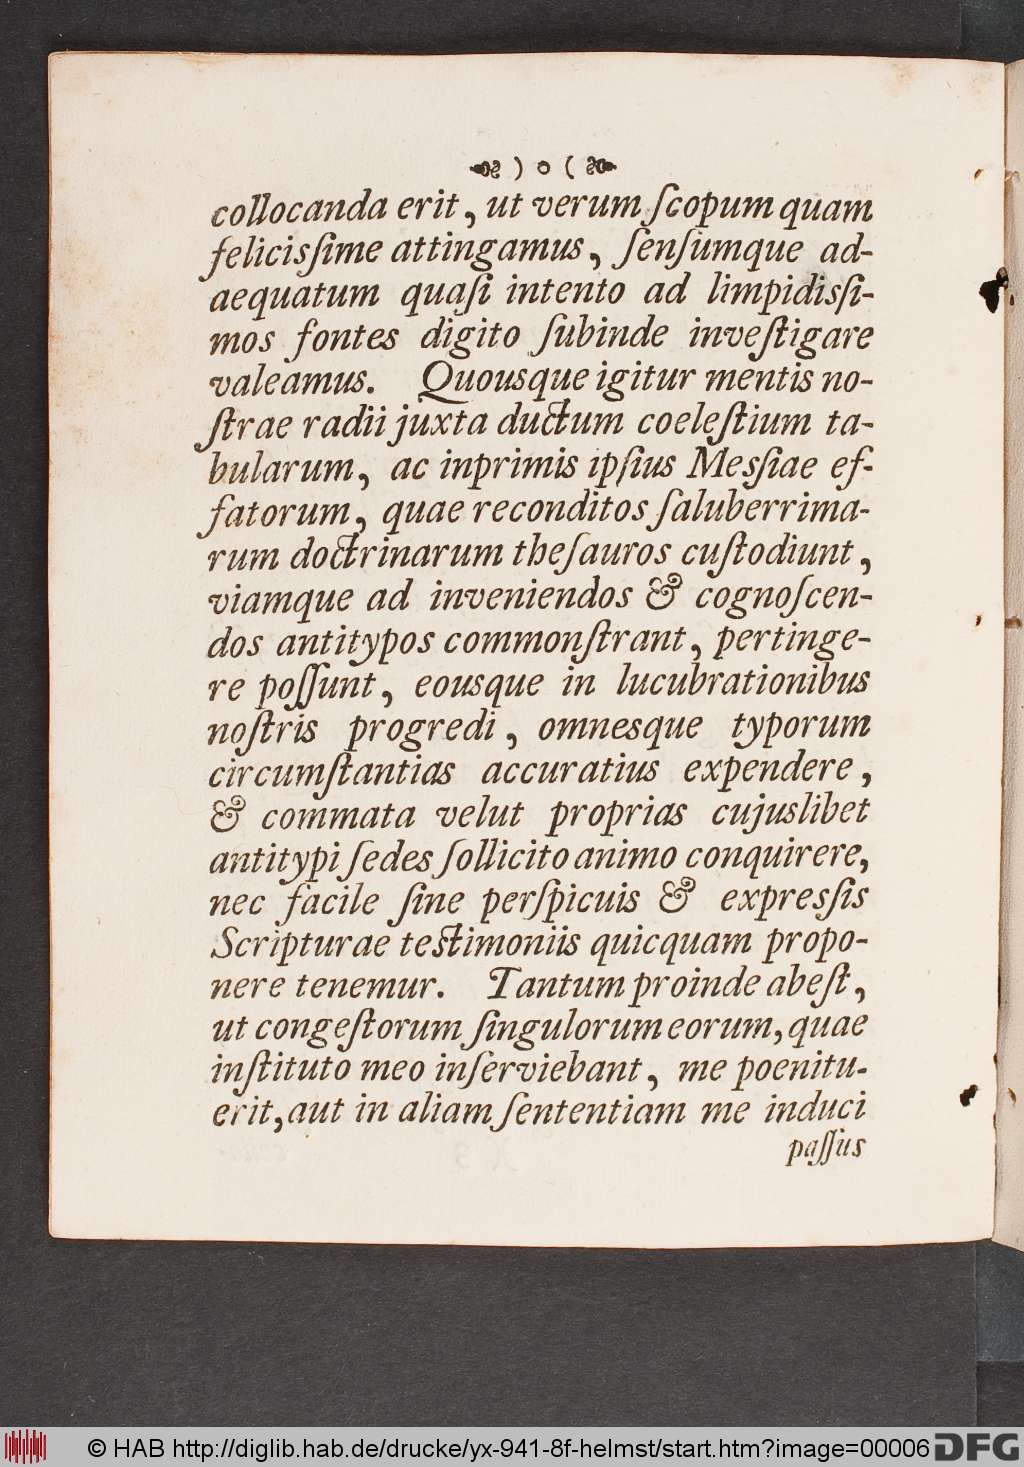 ) o (
collocanda erit, ut verum ſcopum quam
feliciſſime attingamus, ſenſumque ad-
aequatum quaſi intento ad limpidisſi-
mos fontes digito ſubinde inveſtigare
valeamus. Quousque igitur mentis no-
ſtrae radii juxta ductum coeleſtium ta-
bularum, ac inprimis ipſius Mesſiae ef-
fatorum, quae reconditos ſaluberrima-
rum doctrinarum theſauros cuſtodiunt,
viamque ad inveniendos & cognoſcen-
dos antitypos commonſtrant, pertinge-
re poſſunt, eousque in lucubrationibus
noſtris progredi, omnesque typorum
circumſtantias accuratius expendere,
& commata velut proprias cujuslibet
antitypi ſedes ſollicito animo conquirere,
nec facile ſine perſpicuis & expresſis
Scripturae teſtimoniis quicquam propo-
nere tenemur. Tantum proinde abeſt,
ut congeſtorum ſingulorum eorum, quae
inſtituto meo inſerviebant, me poenitu-
erit, aut in aliam ſententiam me induci
paſſus
© HAB http://diglib.hab.de/drucke/yx-941-8f-helmst/start.htm?image=00006 DFG